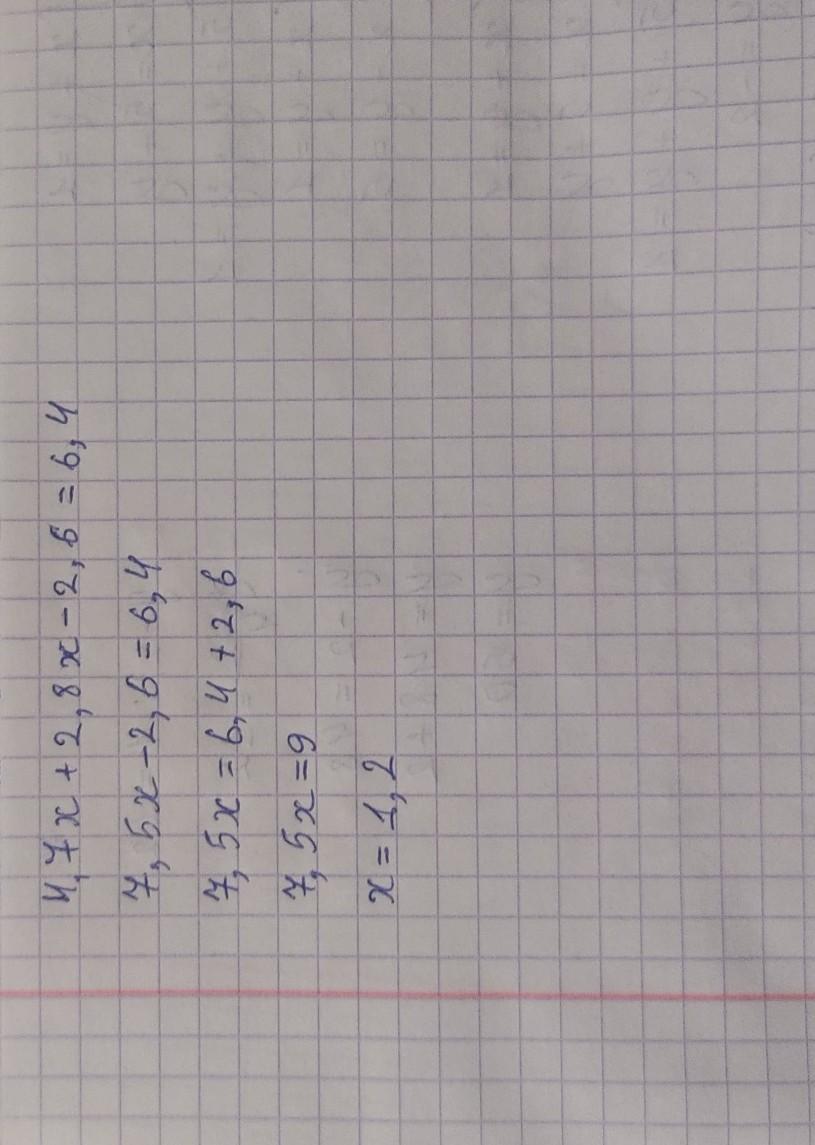 4,7x + 2,8x - 2,6 = 6,4
7,5x - 2,6 = 6,4
7,5x = 6,4 + 2,6
7,5x = 9
x = 1,2